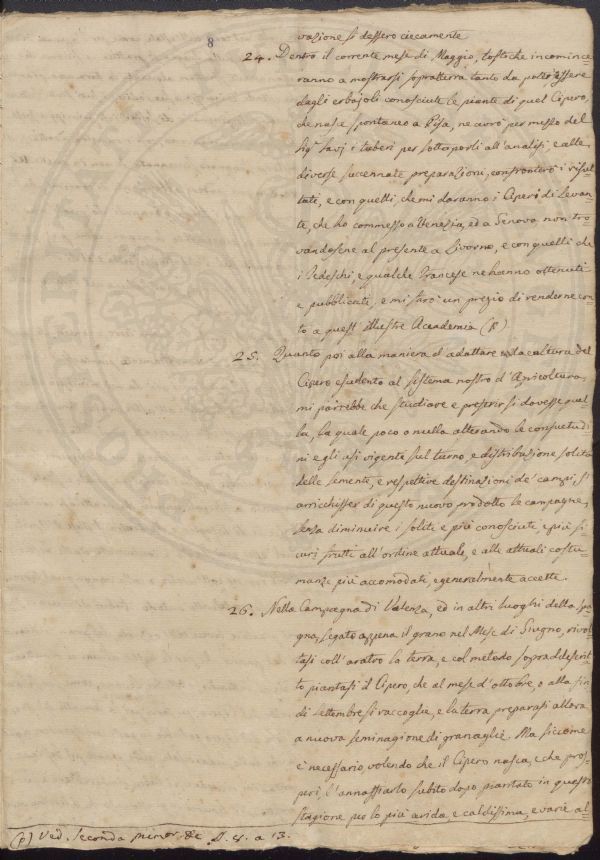 8
vazione si dessero ciecamente
24. Dentro il corrente mese di Maggio, tostoche incomince=
ranno a mostrarsi sopratterra tanto da poter essere
dagli erbajoli conosciute le piante di quel Cipero,
che nasce spontaneo a Pisa, ne avrò per mezzo del
Sig.r Savj i tuberi per sottoporli all'analisi, e alle
diverse succennate preparazione, confronterò i risul=
tati, e con quelli, che mi daranno i Ciperi di Levan=
te, che ho commesso a Venezia, ed a Genova non tro=
vandosene al presente a Livorno, e con quelli che
i Tedeschi, e qualche Francese ne hanno ottenuti
e pubblicati, e mi farò un pregio di renderne con=
to a quest'illustre Accademia (p)
25. Quanto poi alla maniera d'adattare la cultura del
Cipero esculento al sistema nostro d'Agricoltura,
mi parrebbe che studiare e preferir si dovesse quel=
la, la quale poco o nulla alterando le consuetudi
ni e gli usi vigenti sul turno, e distribuzione solita
delle semente, e respettive destinazioni de' campi, s'
arricchisser di questo nuovo prodotto le campagne,
senza diminuire i soliti e più conosciuti, e più si=
curi frutti all'ordine attuale, e alle attuali costu=
manze più accomodati, e generalmente accetti.
26. Nella Campagna di Valenza, ed in altri luoghi della Spa=
gna, segato appena il grano nel Mese di Giugno, rivol=
tasi coll'aratro la terra, e col metodo sopraddescrit=
to piantasi il Cipero, che al mese d'ottobre, o alla fin
di settembre si raccoglie, e la terra preparasi allora
a nuova seminagione di granaglie. Ma siccome
è necessario, volendo che il Cipero nasca, e che pros=
peri, l'annaffiarlo subito dopo piantato in questa
stagione per lo più arida, e caldissima, e varie al=
(p) Ved. seconda memor. &c. a 13.